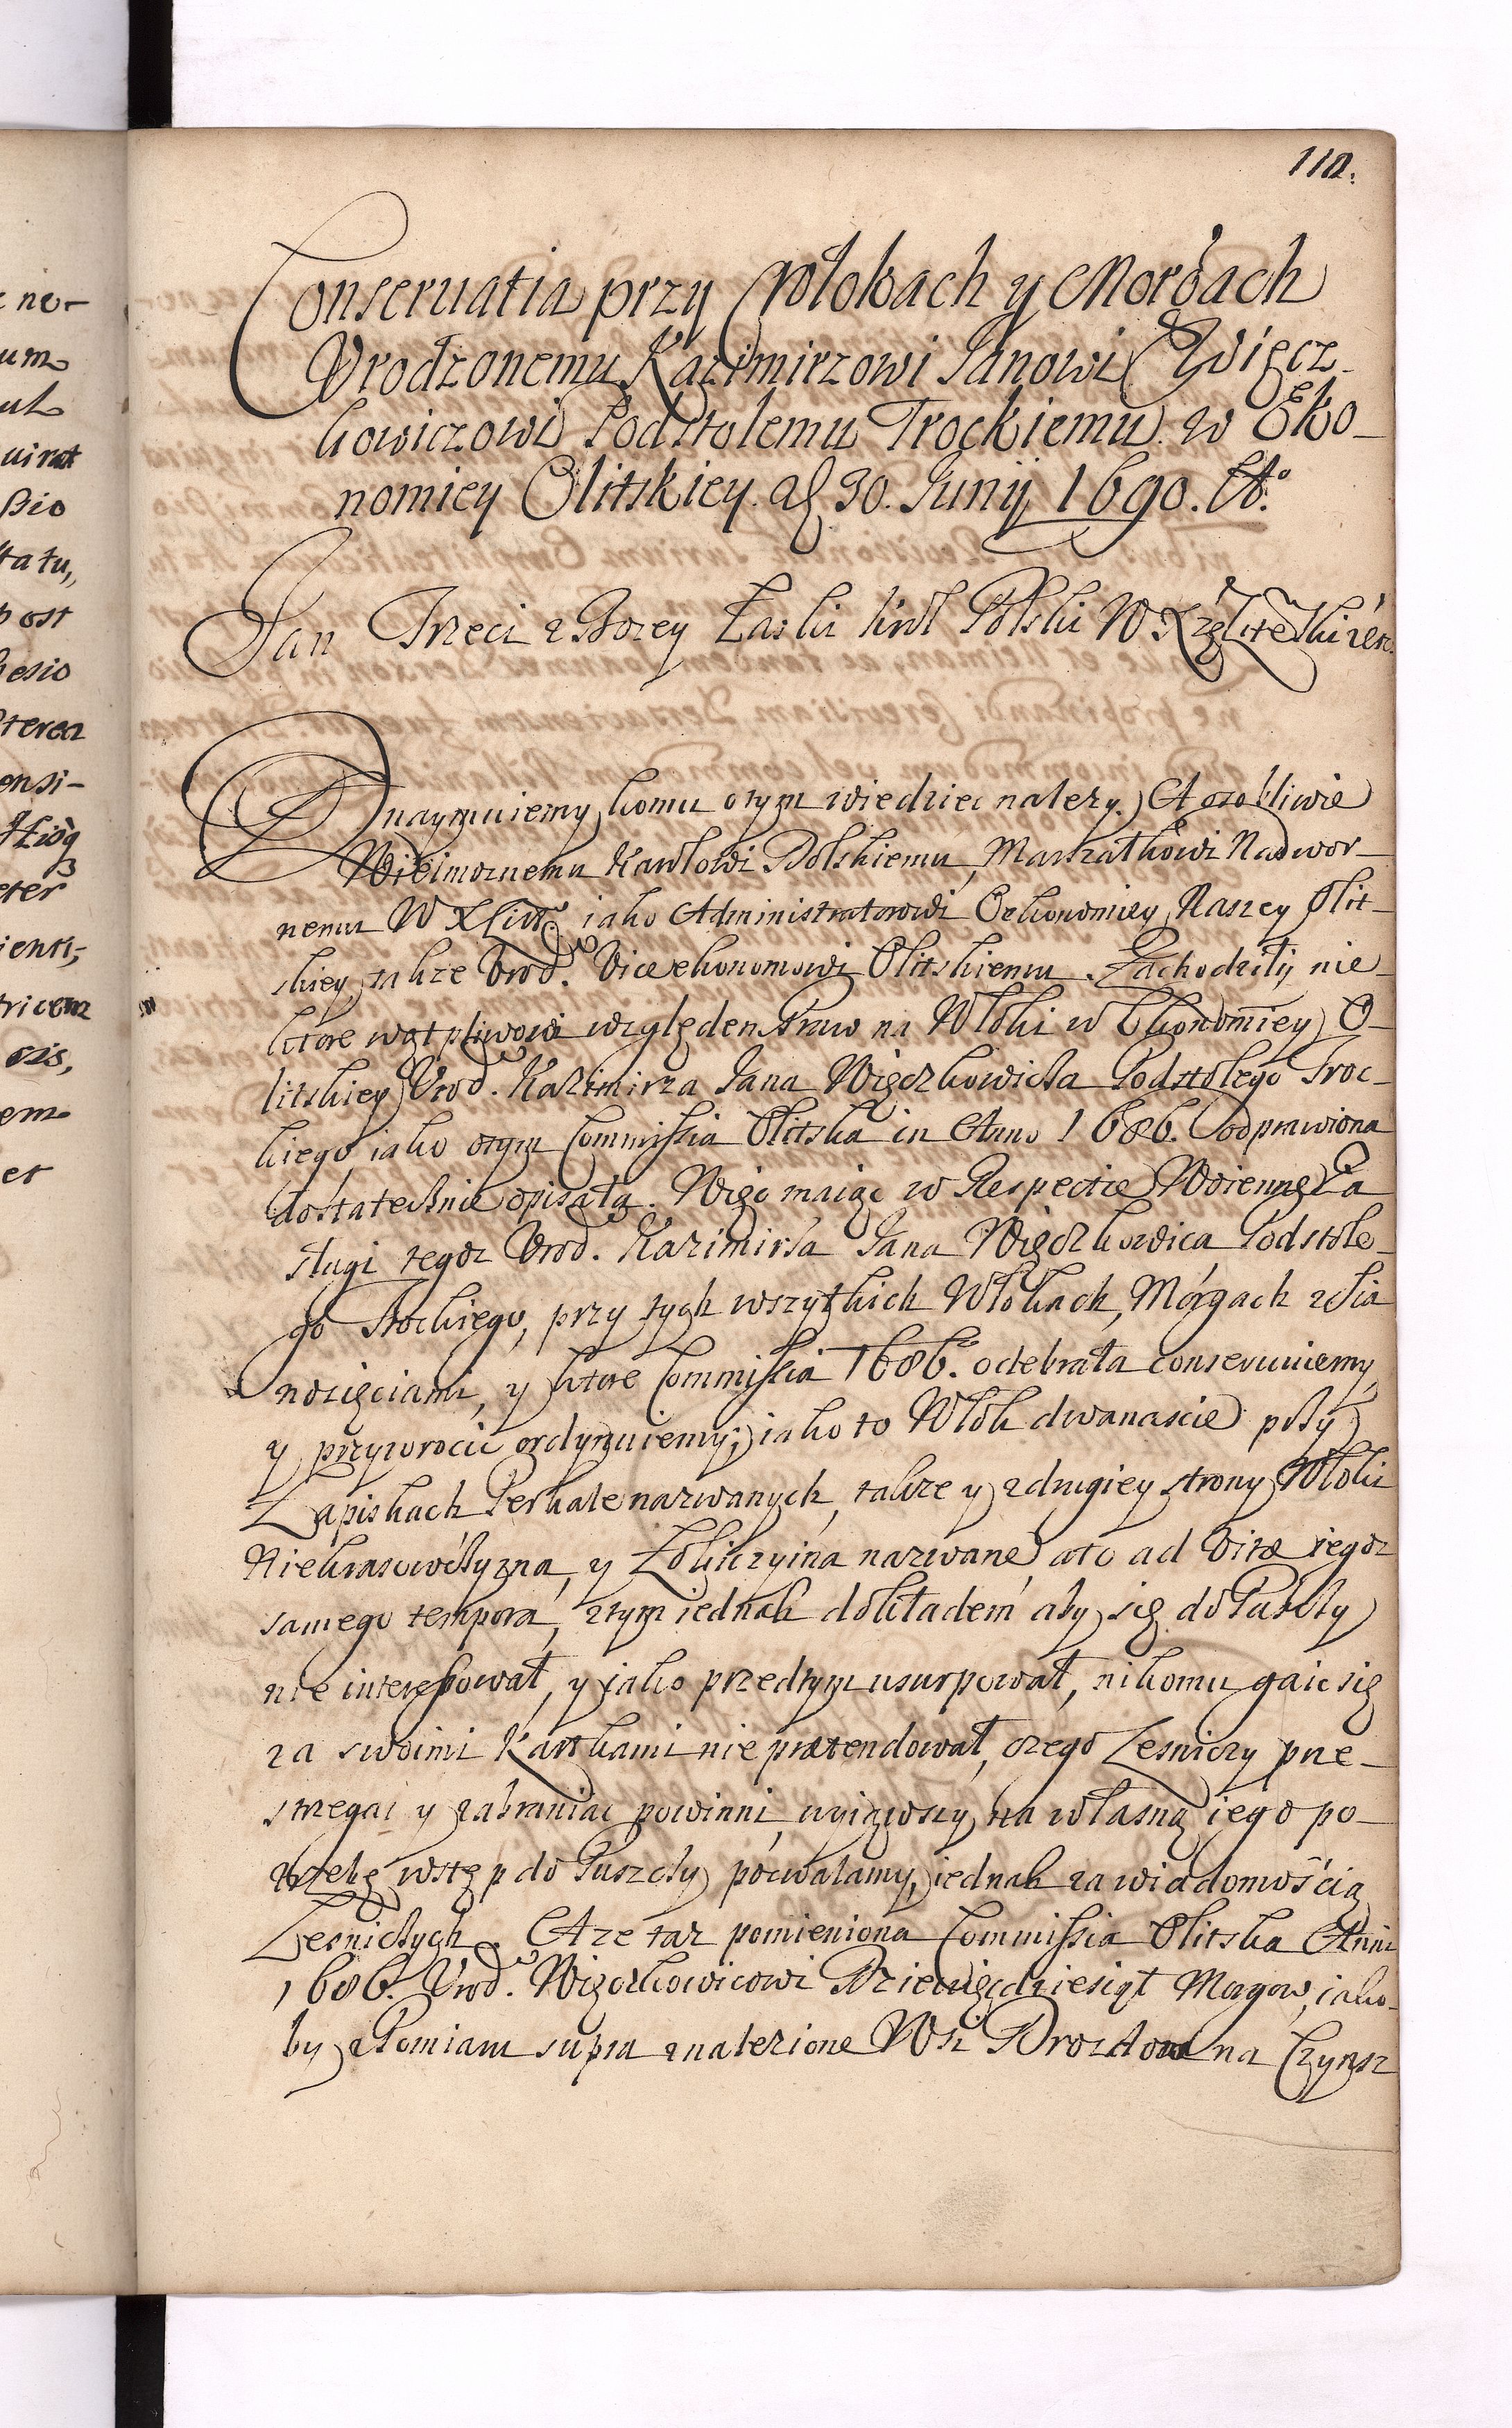 112.
Conseruatia przy Włokach y Morgach
Vrodzonemu Kazimirzowi Janowi Więcz-
kowiczowi Podstolemu Trockiemu w Eko-
nomiey Olitskiey. d. 30. Junij 1690. A.º
Jan Trzeci z Bozey Łaski Krol Polski W X Litewski etc.
Oznaymuiemy komu otym wiedziec nalezy. A osobliwie
Wielmoznemu Karolowi Bolskiemu, Marszałkowi Nadwor-
nemu W X Litt. iako Administratorowi Oekonomiey Naszey Olit-
skiey takze Vrod. Viceekonomowi Olitskiemu. Zachodziły nie-
ktore wątpliwosci względem Praw na Włoki w Ekonomiey O-
litskiey Vrod. Kazimirza Jana Więczkowicza Podstolego Troc-
kiego, iako otym Commissia Olitska in Anno 1686. odprawiona
dostatecznie opisała. Więc maiąc w Respectie Woienne Za
sługi tegoz Vrod. Kazimirza Jana Więczkowica Podstole-
go Trockiego, przy tych wszytkich Włokach, Morgach zSia
nozięciami, y ktore Commissia 1686. odebrała conseruuiemy,
y przywrocic ordynuiemy; iako to Włok dwanascie przy
Zapiskach Perkale nazwanych, takze y zdrugiey strony Włoki
Niekrasowszyzna, y Zokiczyina nazwane, a to ad Vitæ iegoz
samego tempora, ztym iednak dokładem aby się do Puszczy
nie interessował, y iako przedtym usurpował, nikomu gaic się
za swoimi Kartkami nie prætendował, czego Lesniczy prze-
strzegac y zabraniac powinni, wyiąwszy na własną iego po-
trzebę wstęp do Puszczy pozwalamy, iednak za wiadomością
Lesniczych. A ze taz pomieniona Commissia Olitska Anni
1686. Vrod. Więczkowicowi Dziewięcdziesiąt Morgow, iako-
by zPomiaru supra znalezione Wsi Drozdow na Czynsz